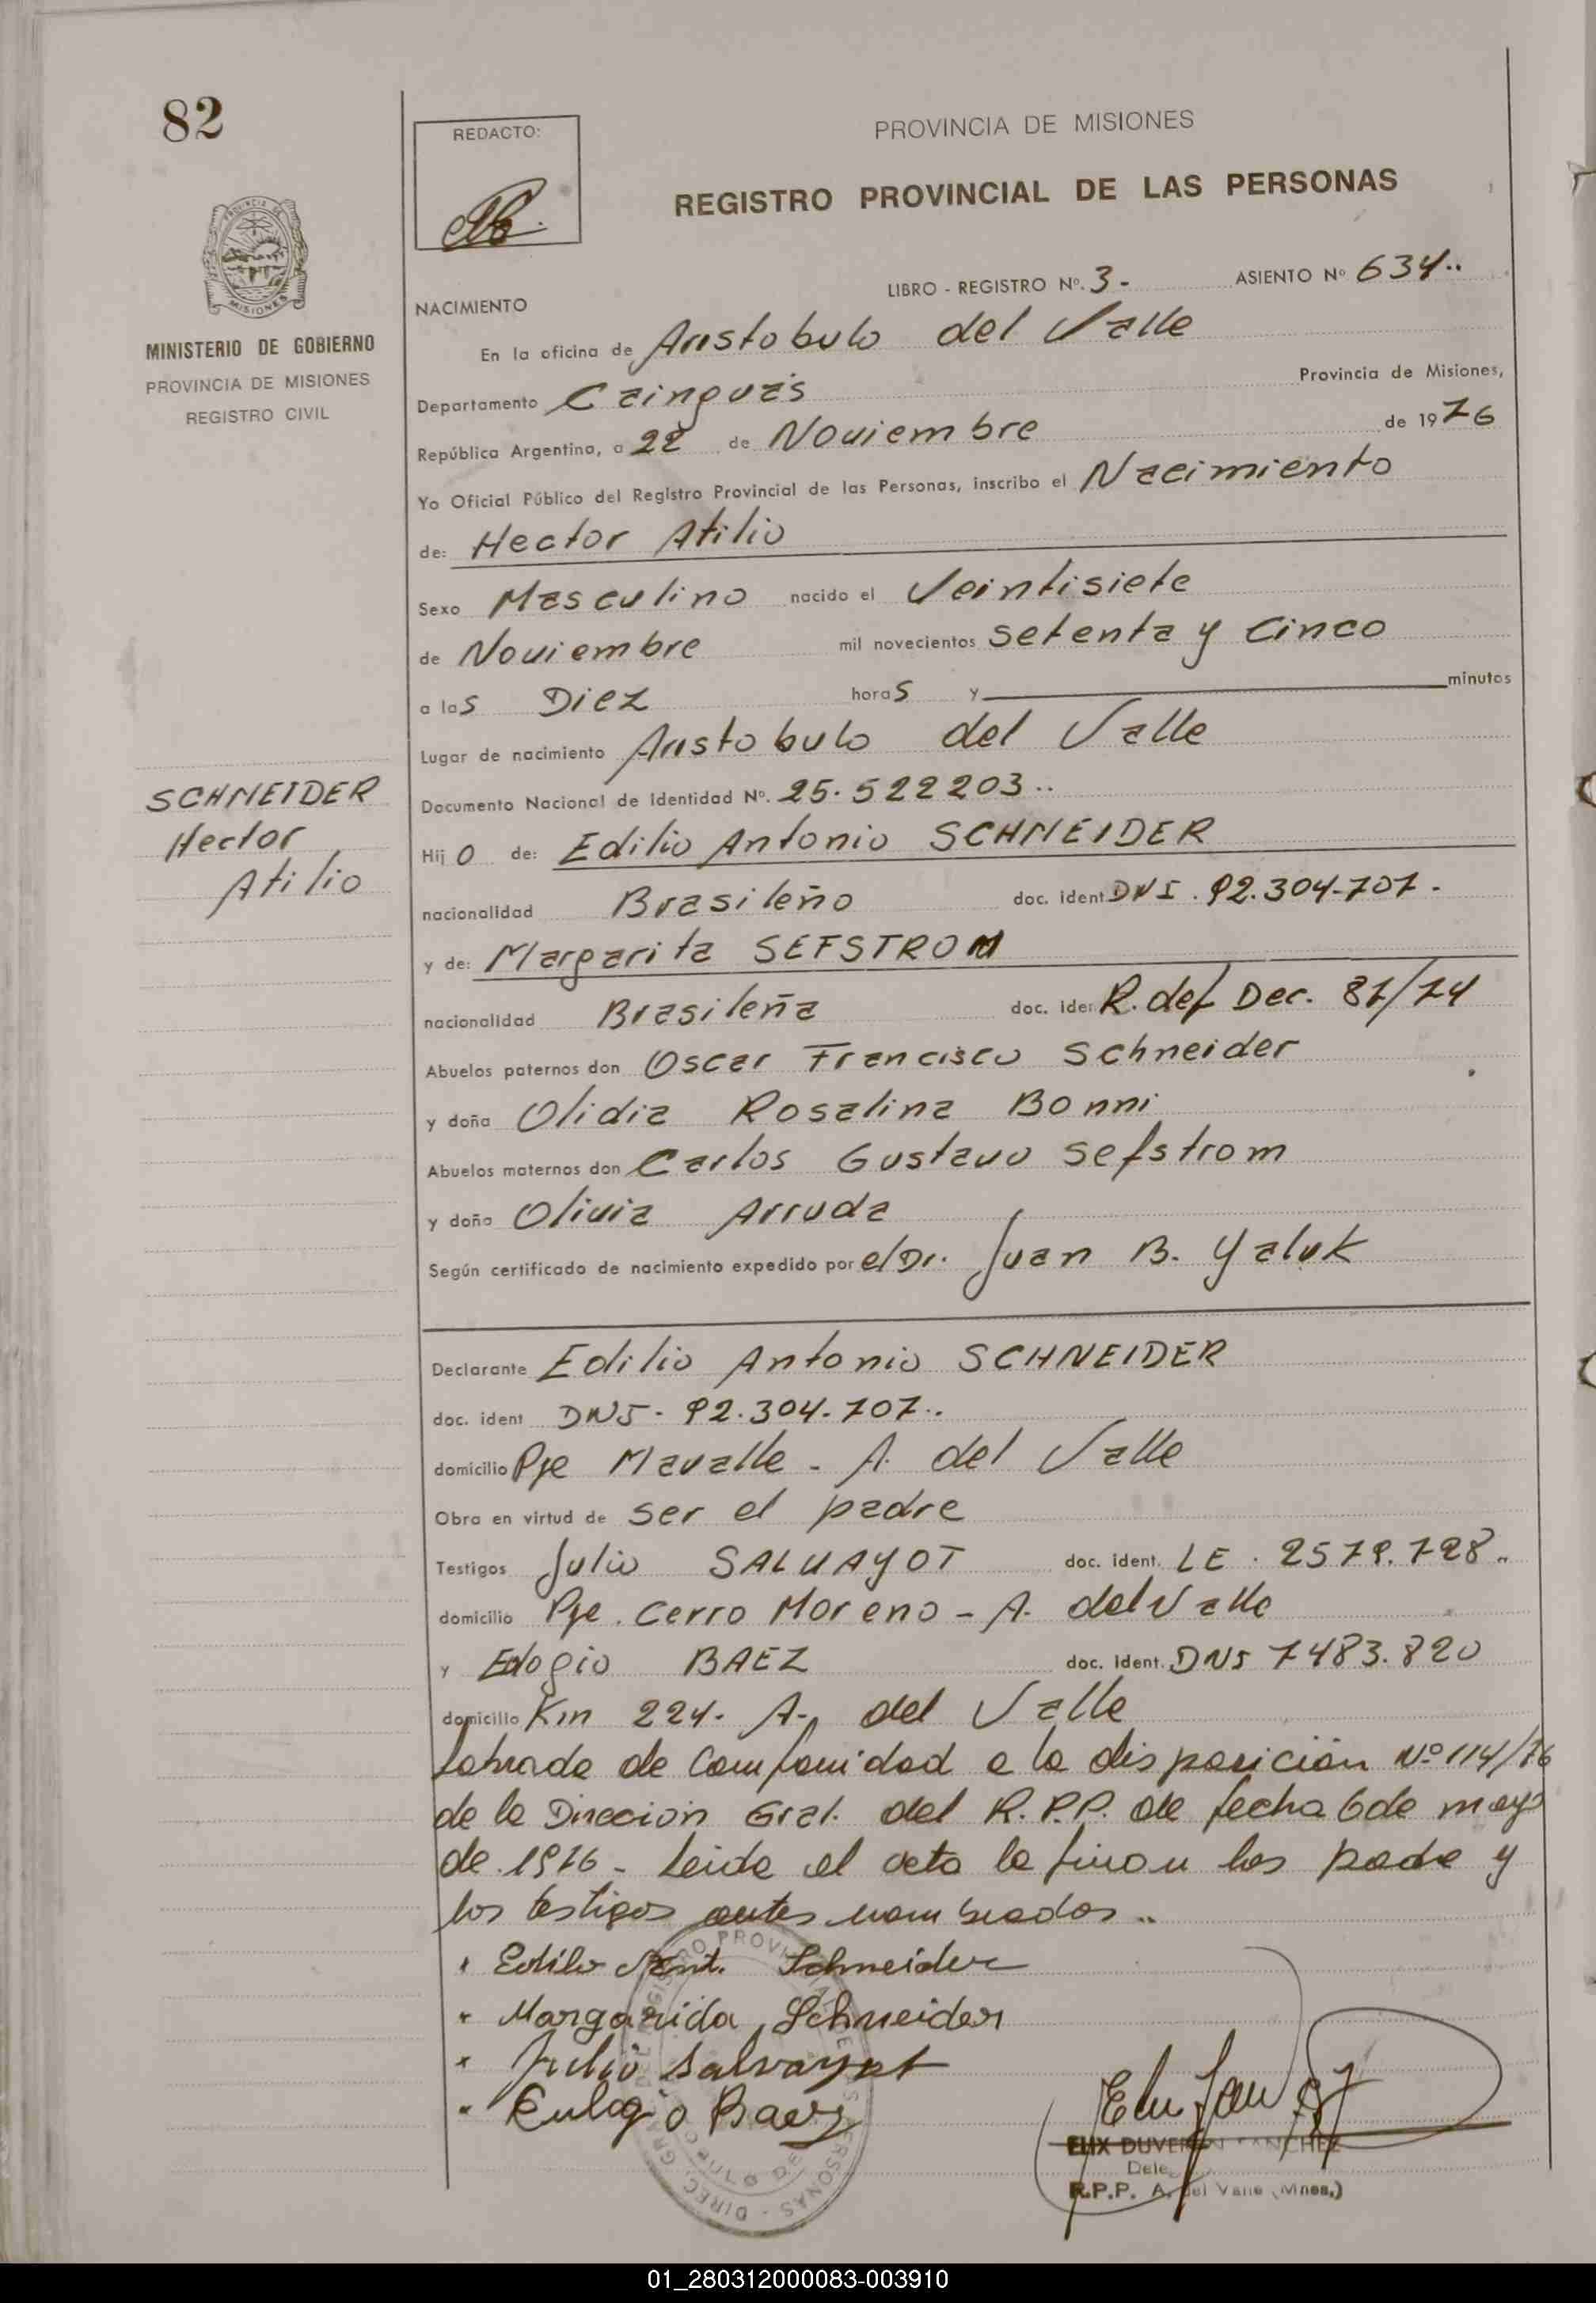 82
REDACTO:
PROVINCIA DE MISIONES
REGISTRO PROVINCIAL DE LAS PERSONAS
MINISTERIO DE GOBIERNO
PROVINCIA DE MISIONES
REGISTRO CIVIL
LIBRO - REGISTRO Nº. 3 - ASIENTO Nº 634..
NACIMIENTO
En la oficina de Aristobulo del Valle
Departamento Cainguás Provincia de Misiones,
República Argentina, a 22 de Noviembre de 1976
Yo Oficial Público del Registro Provincial de las Personas, inscribo el Nacimiento
de: Hector Atilio
Sexo Masculino nacido el Veintisiete
de Noviembre mil novecientos setenta y cinco
a las Diez horas y minutos
Lugar de nacimiento Aristobulo del Valle
SCHNEIDER
Hector
Atilio
Documento Nacional de Identidad Nº. 25.522203..
Hijo de: Edilio Antonio SCHNEIDER
nacionalidad Brasileño doc. ident DNI. 92.304-707.
y de: Margarita SEFSTROM
nacionalidad Brasileña doc. ide R. def Dec. 87/74
Abuelos paternos don Oscar Francisco Schneider
y doña Olidia Rosalina Bonni
Abuelos maternos don Carlos Gustavo Sefstrom
y doña Olivia Arruda
Según certificado de nacimiento expedido por el Dr. Juan B. Yaluk
Declarante Edilio Antonio SCHNEIDER
doc. ident DNI - 92.304.707..
domicilio Pje Mavalle - A. del Valle
Obra en virtud de ser el padre
Testigos Julio SALVAYOT doc. ident. LE. 2579.728..
domicilio Pje. Cerro Moreno - A. del Valle
y Eulogio BAEZ doc. ident. DNI 7483.820
domicilio Km 224. A. del Valle
labrada de conformidad a la disposición Nº 114/76
de la Direccion Gral. del R.P.P. de fecha 6 de mayo
de 1976 - Leida el acta la firman los padre y
los testigos antes nombrados..
Edilio Ant. Schneider
Margarida Schneider
Julio Salvayot
Eulogio Baez
ELIX DUVER SANCHEZ
Dele
R.P.P. A. del Valle (Mnes.)
01_280312000083-003910